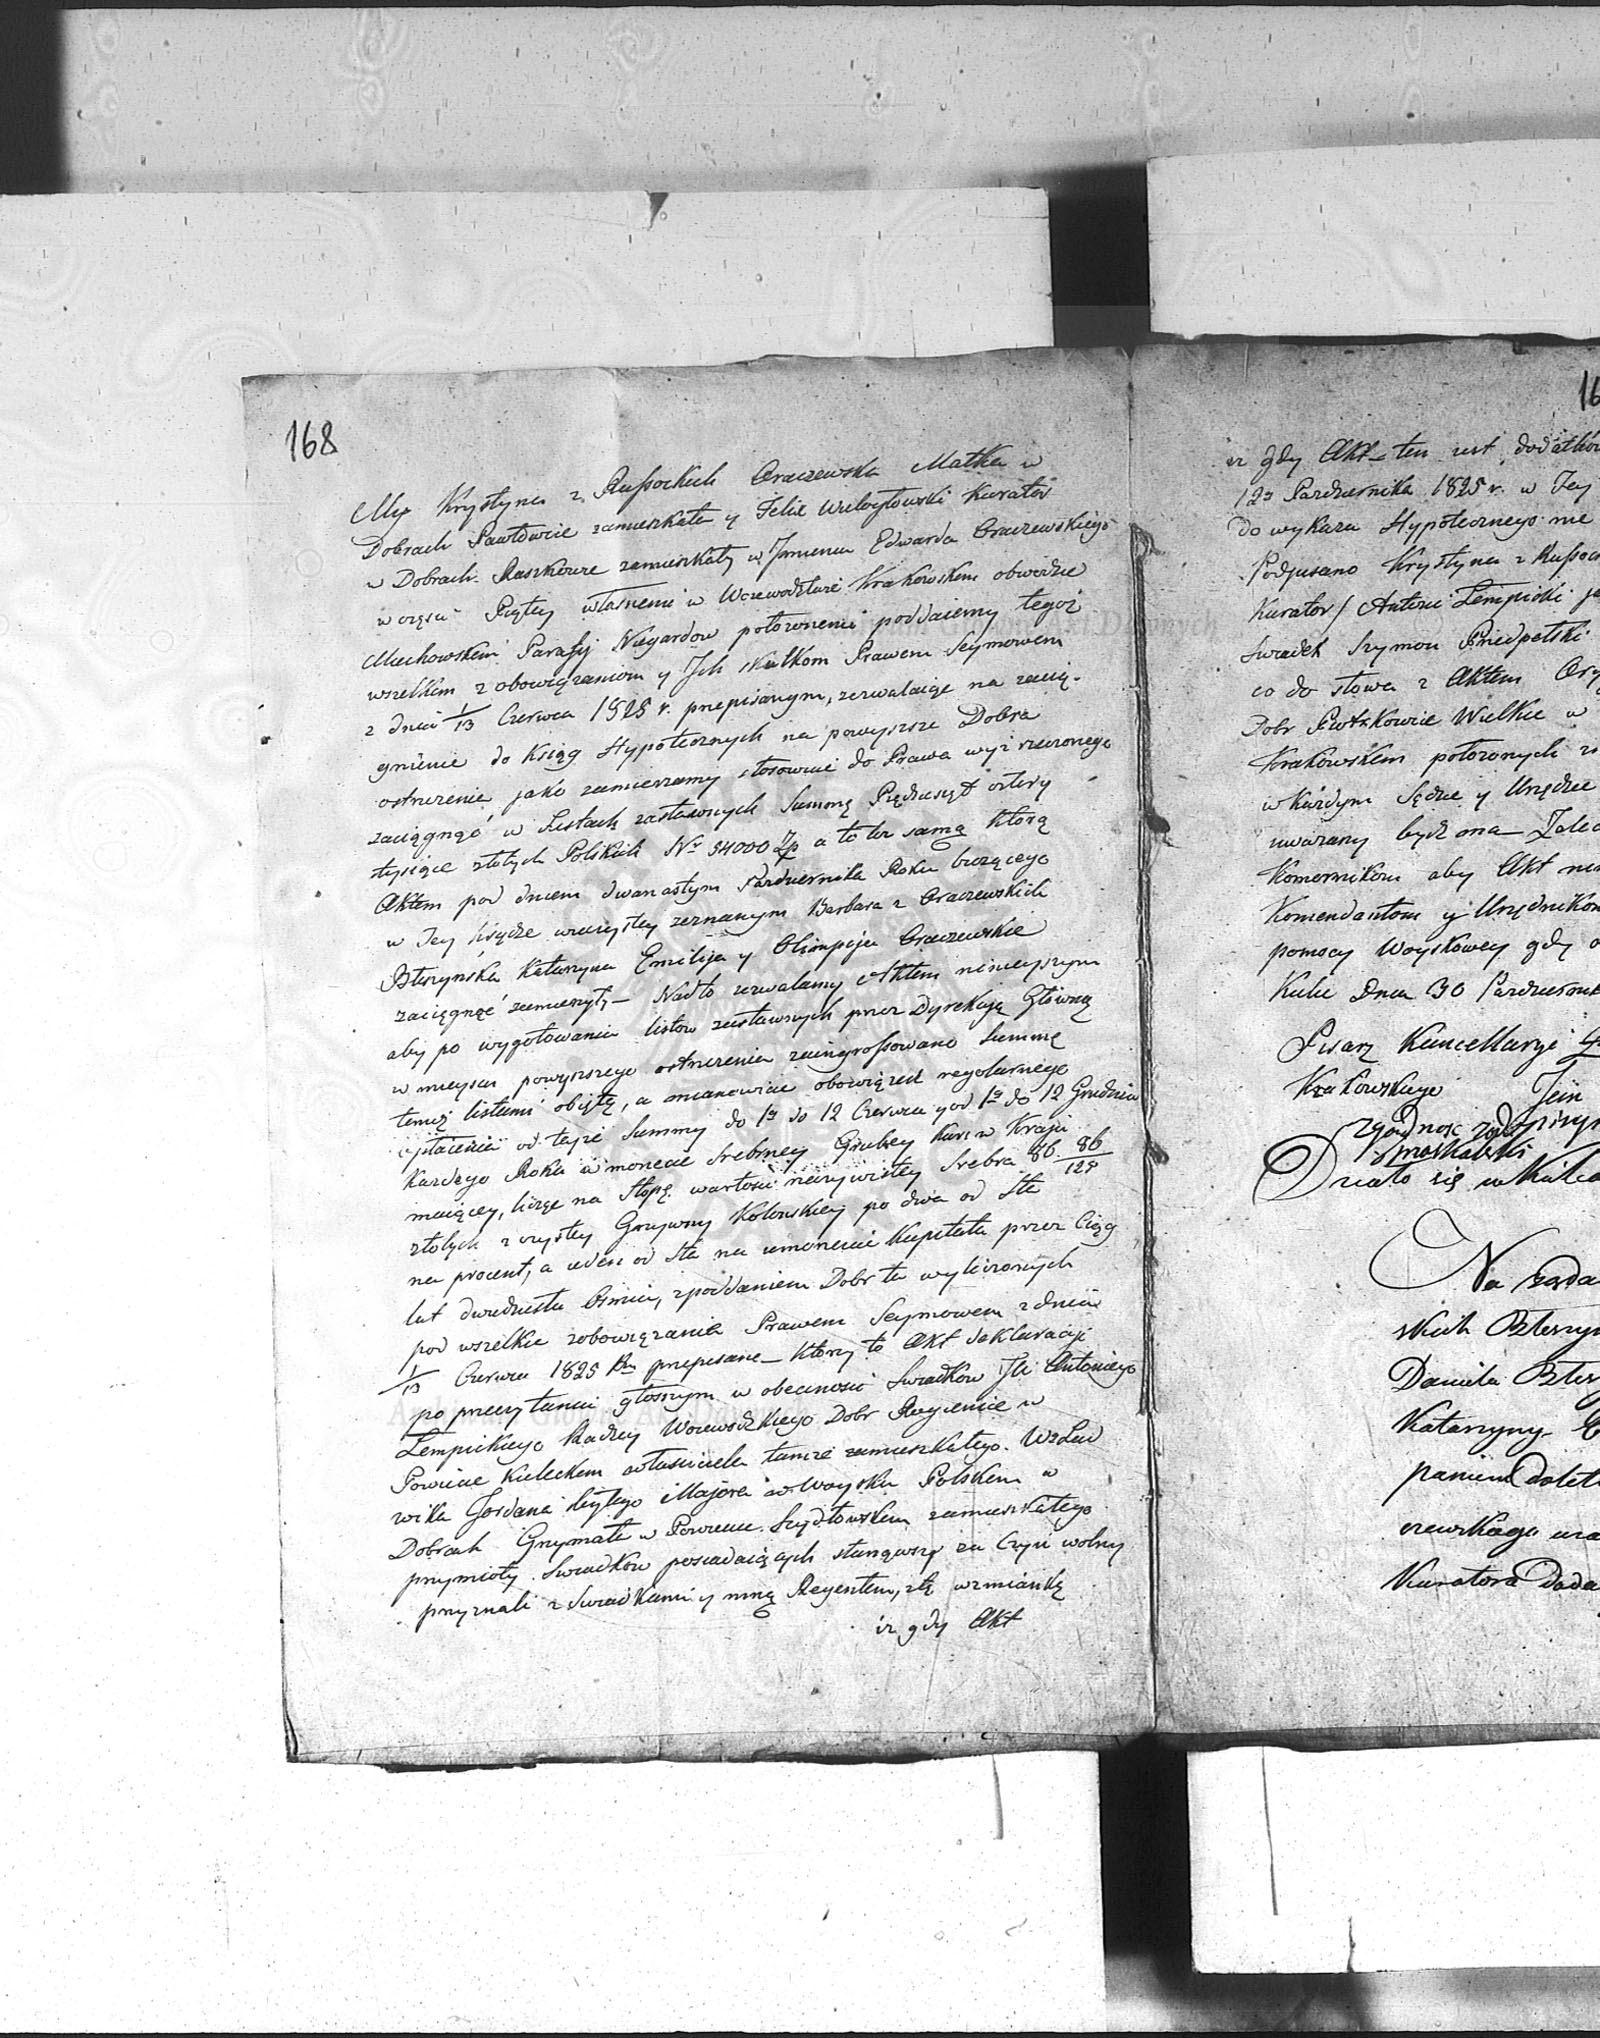 168
My Krystyna z Russockich Oraczewska Matka w
Dobrach Pawłowie zamieszkała y Felix Wielogłowski Kurator
w Dobrach Raszkowie zamieszkały w Imieniu Edwarda Oraczewskiego
w części Piątey własnemi w Woiewodztwie Krakowskim obwodzie
Miechowskim Parafij Niegardow położonemi poddaiemy tegoż
wszelkim zobowiązaniom y Ich skutkom Prawem Seymowem
z dnia 1/13 Czerwca 1825 r. przepisanym, zezwalaiąc na zacią-
gnienie do Ksiąg Hypotecznych na powyższe Dobra
ostrzeżenia jako zamierzamy stosownie do Prawa wyż rzeczonego
zaciągnąć w Listach zastawnych Summę Piędziesiąt cztery
tysiące złotych Polskich Nr 54000 Zp a to tę samą którą
Aktem pod dniem dwunastym Pazdziernika Roku bieżącego
w Tey księdze wieczystey zeznanym Barbara z Oraczewskich
Bterzyńska Katarzyna Emilija y Olimpija Oraczewskie
zaciągnąć zamierzyły – Nadto zezwalamy Aktem ninieyszym
aby po wygotowaniu listow zastawnych przez Dyrekcją Główną
w mieysce powyższego ostrzeżenia zaingrossowano Summę
temiż listami obiętą, a mianowicie obowiązek regolarnego
opłacenia od teyże Summy do 1º do 12 Czerwca y od 1º do 12 Grudnia
każdego Roku w monecie srebrney Grubey kurs w Kraju
maiącey, licząc na stopę wartości rzeczywistey srebra 86 86/125
złotych z czystey Grzywny Kolońskiey po dwa od sta
na procent, a ieden od sta na umorzenie kapitału przez Ciąg
lat dwudziestu Ośmiu, z poddaniem Dobr tu wyliczonych
pod wszelkie zobowiązania Prawem Seymowem z dnia
1/13 Czerwca 1825 Ru przepisane – który to Akt deklaracij
po przeczytaniu głośnym w obecności Swiadków JW Antoniego
Łempickiego Radzcy Woiewodzkiego Dobr Rzycienice w
Powiecie Kieleckim własciciela tamże zamieszkałego. W Lud
wika Jordana byłego Majora w Woysku Polskim w
Dobrach Grzymała w Powiecie Szydłowskim zamieszkałego
przymioty swiadków posiadaiących stanąwszy za Czyn wolny
przyznali z swiadkami y mną Regentem, z tą wzmianką
iż gdy Akt
16
iż gdy Akt ten iest dodatków
12º Pazdziernika 1825 r. w Tey
do wykazu Hypotecznego nie
Podpisano Krystyna z Russoc
Kurator / Antoni Łempicki ja
świadek Szymon
co do słowa z Aktem Ory
Dobr Piotrkowice Wielkie w
Krakowskim położonych
w każdym Sądzie y Urzędzie
uważany bydź ma – Zalec
Komornikom aby Akt nin
Komendantom y Urzędnikom
pomocy Woyskowey gdy o
Kielc Dnia 30 Pazdziernik
Pisarz Kancellaryi
Krakowskiego
zgodność
Działo się w Kielca
Na żąda
skich Bterzyn
Daniela Bter
Katarzyny, E
panien Dolet
czewskiego
Kuratora Doda